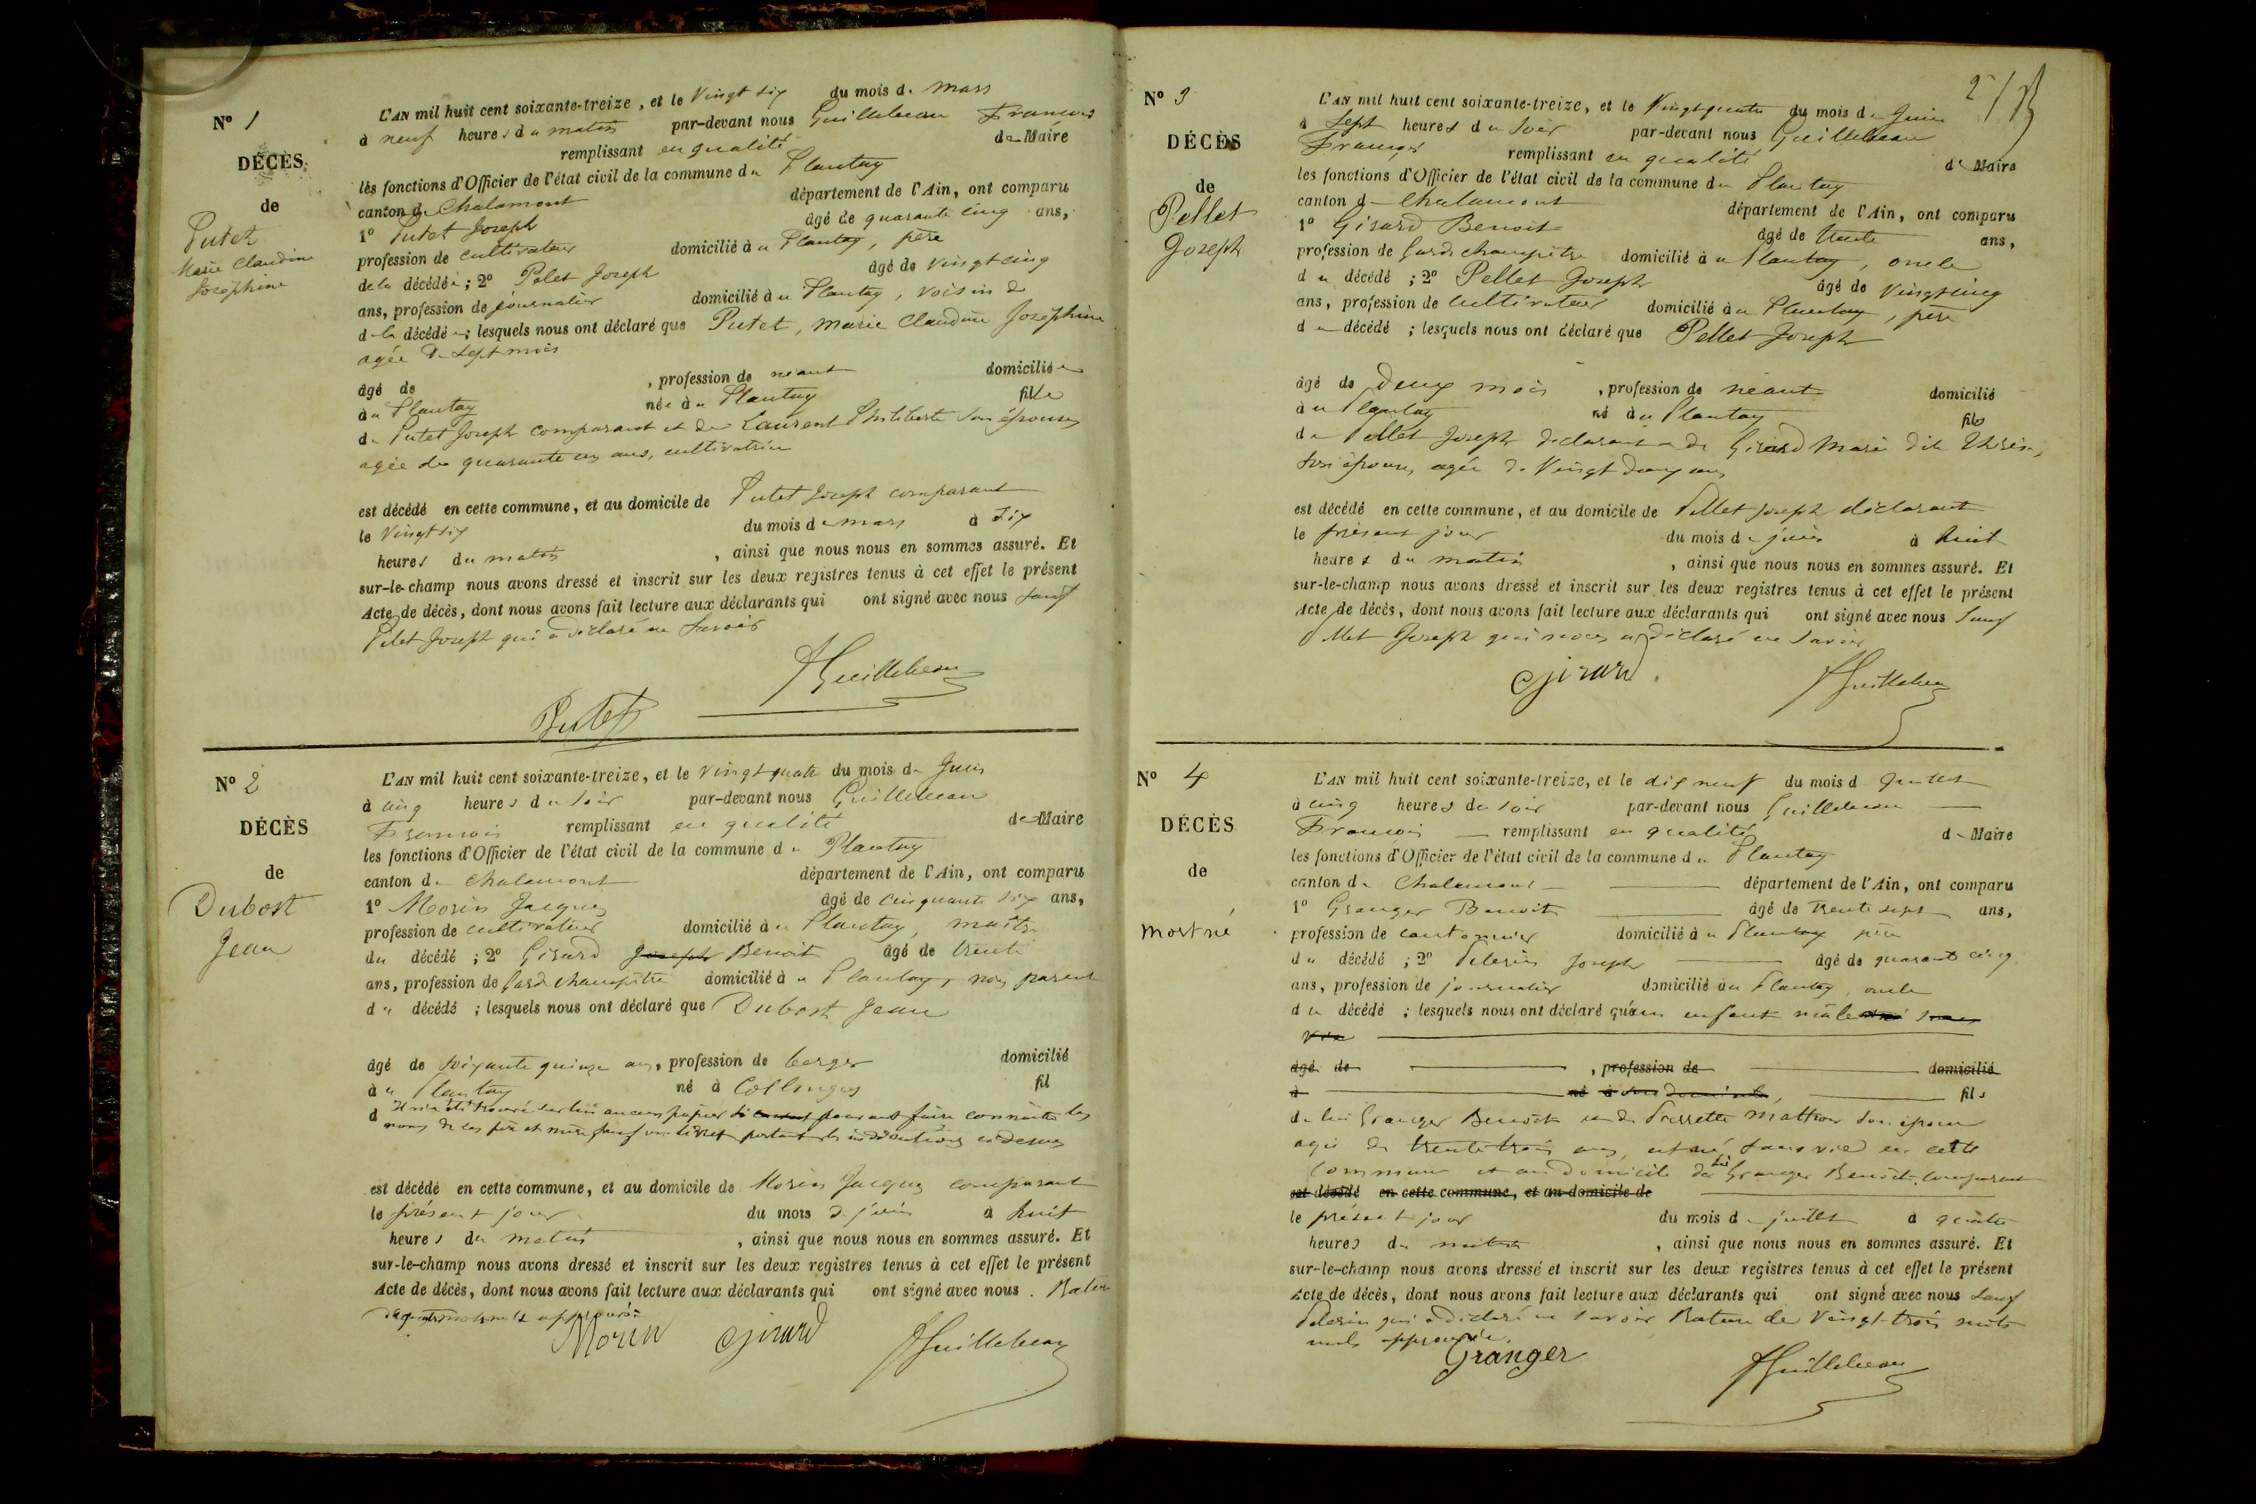 Nº 1
DÉCÈS
de
Putet
Marie Claudine
Josephine
L'AN mil huit cent soixante-treize, et le Vingt six du mois de mars
à neuf heures du matin par-devant nous Guillebeau François
remplissant en qualité de Maire
les fonctions d'Officier de l'état civil de la commune du Plantay
canton de Chalamont département de l'Ain, ont comparu
1º Putet Joseph âgé de quarante cinq ans,
profession de cultivateur domicilié à u Plantay, père
de la décédée ; 2º Pelet Joseph âgé de vingt cinq
ans, profession de journalier domicilié à u Plantay, voisin de
d la décédée ; lesquels nous ont déclaré que Putet, marie Claudine Josephine
agée de sept mois
âgé de , profession de néant domiciliée
à u Plantay née à u Plantay fille
de Putet Joseph comparant et de Laurent Philiberte son épouse
agée de quarante un ans, cultivatrice
est décédé en cette commune, et au domicile de Putet Joseph comparant
le Vingt six du mois de mars à six
heures du matin , ainsi que nous nous en sommes assuré. Et
sur-le-champ nous avons dressé et inscrit sur les deux registres tenus à cet effet le présent
Acte de décès, dont nous avons fait lecture aux déclarants qui ont signé avec nous sauf
Pelet Joseph qui a déclaré ne savoir
Guillebeau
Putet
Nº 2
DÉCÈS
de
Dubost
Jean
L'AN mil huit cent soixante-treize, et le vingt quatre du mois de Juin
à cinq heures du soir par-devant nous Guillebeau
François remplissant en qualité de Maire
les fonctions d'Officier de l'état civil de la commune du Plantay
canton de Chalamont département de l'Ain, ont comparu
1º Morin Jacques âgé de cinquante six ans,
profession de cultivateur domicilié à u Plantay, maître
du décédé ; 2º Girard Joseph Benoit âgé de trente
ans, profession de Garde champêtre domicilié à u Plantay, non parent
du décédé ; lesquels nous ont déclaré que Dubost Jean
âgé de soixante quinze ans, profession de berger domicilié
à u Plantay né à Collonges fil
d Il n'a été trouvé sur lui aucun papier pouvant faire connaitre les
noms de ses père et mère sauf un livret portant les indications ci dessus
est décédé en cette commune, et au domicile de Morin Jacques comparant
le présent jour du mois de juin à huit
heures du matin , ainsi que nous nous en sommes assuré. Et
sur-le-champ nous avons dressé et inscrit sur les deux registres tenus à cet effet le présent
Acte de décès, dont nous avons fait lecture aux déclarants qui ont signé avec nous. Rature
approuvé
Morin Girard Guillebeau
Nº 3
DÉCÈS
de
Pellet
Joseph
2
L'AN mil huit cent soixante-treize, et le Vingt quatre du mois de Juin
à Sept heures du soir par-devant nous Guillebeau
François remplissant en qualité de Maire
les fonctions d'Officier de l'état civil de la commune du Plantay
canton de Chalamont département de l'Ain, ont comparu
1º Girard Benoit âgé de trente ans,
profession de Garde champêtre domicilié à u Plantay, oncle
du décédé ; 2º Pellet Joseph âgé de Vingt cinq
ans, profession de cultivateur domicilié à u Plantay, père
du décédé ; lesquels nous ont déclaré que Pellet Joseph
âgé de Deux mois , profession de néant domicilié
à u Plantay né à u Plantay fils
de Pellet Joseph déclarant et de Girard Marie dite Thérèse,
son épouse, agée de Vingt deux ans
est décédé en cette commune, et au domicile de Pellet Joseph déclarant
le présent jour du mois de juin à huit
heures du matin , ainsi que nous nous en sommes assuré. Et
sur-le-champ nous avons dressé et inscrit sur les deux registres tenus à cet effet le présent
Acte de décès, dont nous avons fait lecture aux déclarants qui ont signé avec nous sauf
Pellet Joseph qui nous a déclaré ne savoir
Girard Guillebeau
Nº 4
DÉCÈS
de
Mort né
L'AN mil huit cent soixante-treize, et le dix neuf du mois d Juillet
à cinq heures du soir par-devant nous Guillebeau
François remplissant en qualité de Maire
les fonctions d'Officier de l'état civil de la commune du Plantay
canton de Chalamont département de l'Ain, ont comparu
1º Granger Benoit âgé de trente sept ans,
profession de cantonnier domicilié à u Plantay père
du décédé ; 2º Pelerin Joseph âgé de quarante cinq
ans, profession de journalier domicilié à u Plantay, oncle
du décédé ; lesquels nous ont déclaré qu'un enfant mâle né sans
vie
âgé de , profession de domicilié
à né à fils
de lui Granger Benoit et de Perrette son épouse
agée de trente trois ans, est né sans vie en cette
commune et au domicile du dit Granger Benoit comparant
est décédé en cette commune, et au domicile de
le présent jour du mois de juillet à quatre
heures du matin , ainsi que nous nous en sommes assuré. Et
sur-le-champ nous avons dressé et inscrit sur les deux registres tenus à cet effet le présent
Acte de décès, dont nous avons fait lecture aux déclarants qui ont signé avec nous sauf
Pelerin qui a déclaré ne savoir Rature de Vingt-trois mots
nuls approuvée.
Granger Guillebeau